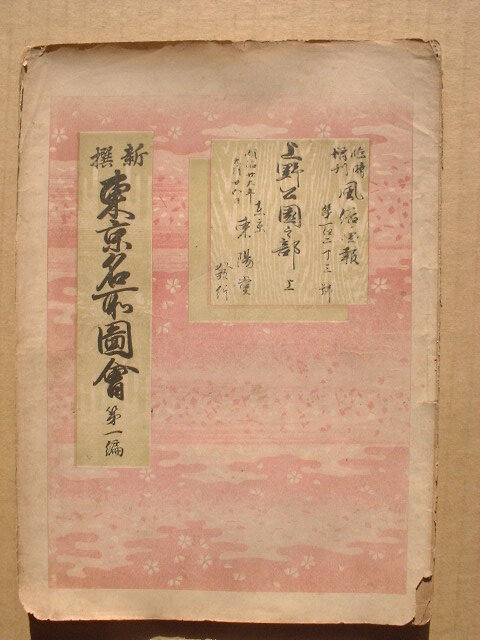 臨時
増刊
風俗画報
第一百二十三號
上野公園之部 上
明治廿九年
九月廿五日
東京
東陽堂
發行
新撰
東京名所圖會
第一編